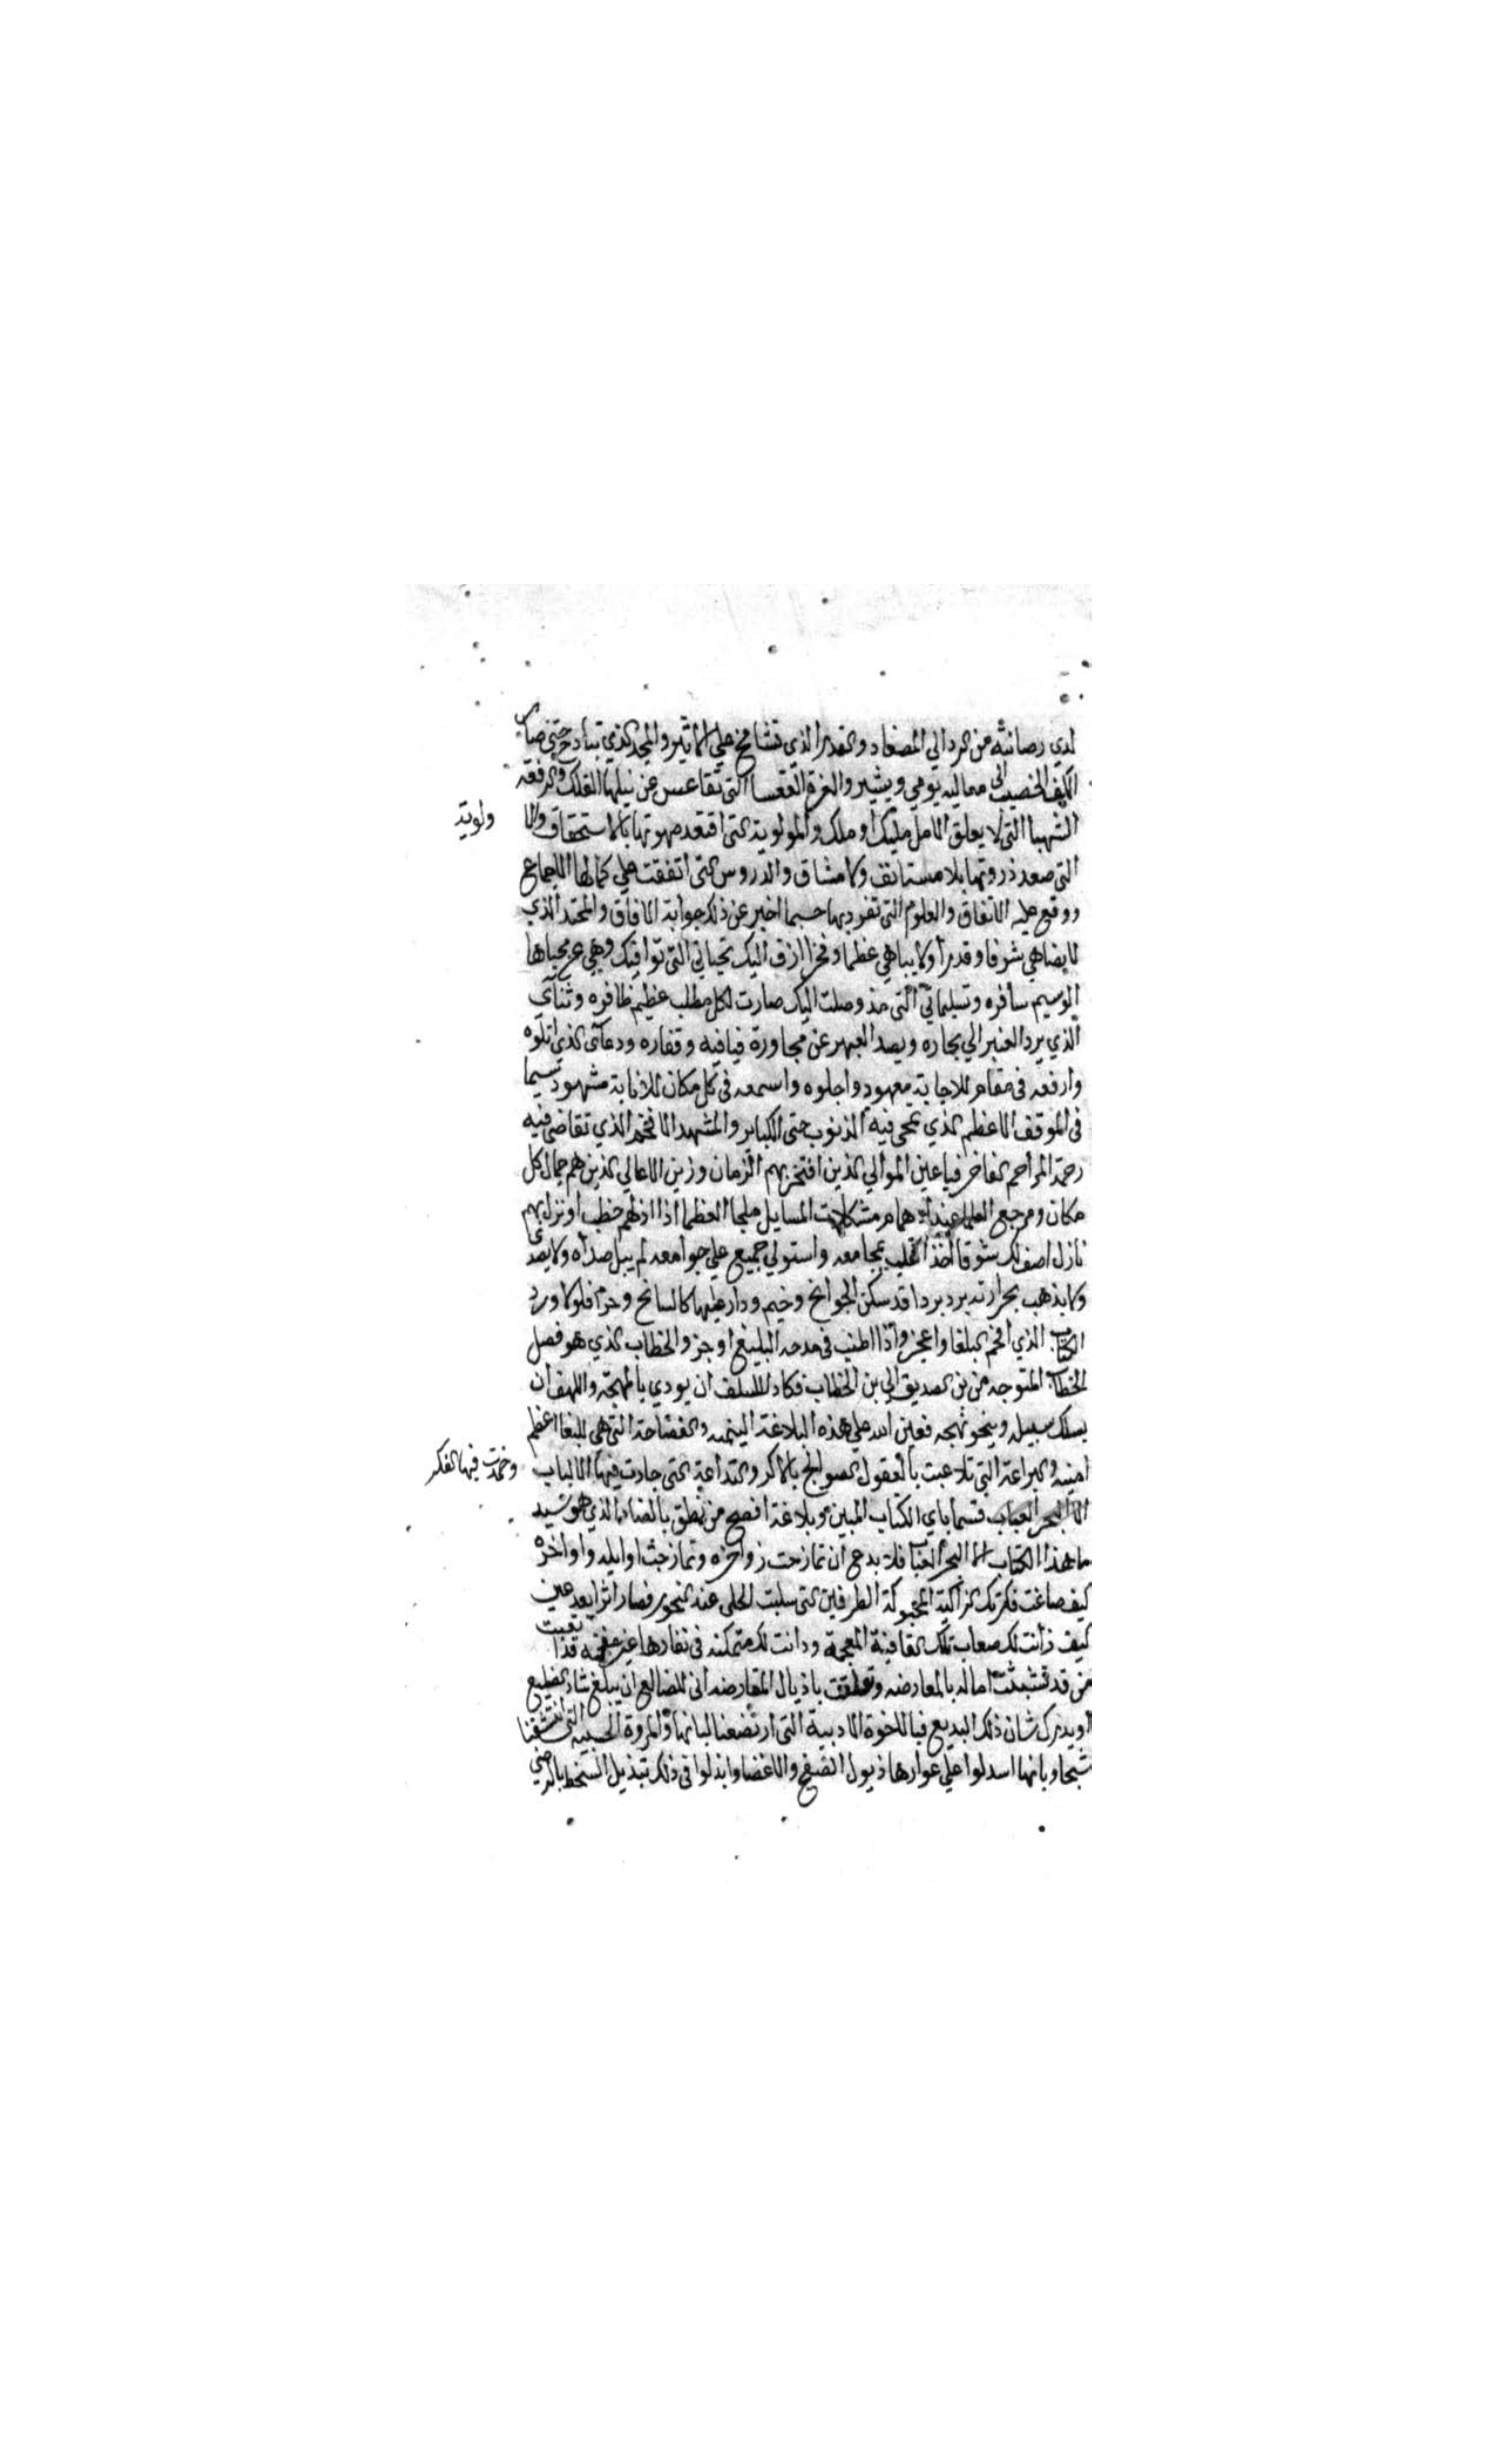 لدي رصانته من الردالي المصغاد والقدر الذي تشامخ علي الاثير والمجد الذي تباذخ حتى صار
الكف الخصيب الى معاليه يومي ويشير والعزة القعسا التي تقاعس عن نيلها الفلك والرفعه
الشهبا التي لا يعلق الامل مليك او ملك والمولوية التي اقتعد صهوتها بالاستحقاق والا
ولوية
التي صعد ذروتها بلا مستانف ولا مشاق والدروس التي اتفقت علي كمالها الاجماع
ووقع عليه الاتفاق والعلوم التي تفرد بها حسبما اخبر عن ذلك جوابة الافاق والمحتد الذي
لا يضاهي شرفا وقدرا ولا يباهي عظما وفخرا ازف اليك تحياتي التي توافيك وهي عن محياها
الوسيم سافره وتسليماتي التي مذ وصلت اليك صارت لكل مطلب عظيم ظافره وثنآي
الذي يرد العنبر الي بحاره ويصد العبهر عن مجاورة فيافيه وقفاره ودعآى الذي اتلوه
وارفعه في مقام للاجابة معهود واجلوه واسمعه في كل مكان للانابة مشهود سيما
في الموقف الاعظم الذي تمحى فيه الذنوب حتى الكباير والمشهد الافخم الذي تقاضى فيه
رحمة المراحم المفاخر فيا عين الموالي الذين افتخر بهم الزمان وزين الاعالي الذين هم جمال كل
مكان ومرجع العلما عند ابهام مشكلات المسايل ملجا العظما اذا ادلهم خطب او نزل بهم
نازل اصف لك شوقا اخذ القلب بمجامعه واستولي جميع علي جوامعه لم يبل صداه ولا يصدى
ولا يذهب بحرارته برد بردا قد سكن الجوانح وخيم ودار عليها كالسانح وحوم فلولا ورد
الكتاب الذي افحم البلغا واعجز واذا اطنب في مدحه البليغ اوجز والخطاب الذي هو فصل
الخطاب المتوجه من بن الصديق الي بن الخطاب فكاد للسلف ان يودي بالمهجة واللهف ان
يسلك سبيله وينحو نهجه فعين الله علي هذه البلاغة اليتيمه والفصاحة التي هي للبغا اعظم
امنيه والبراعة التي تلاعبت بالعقول الصوالج بالاكر والبداعة التي حارت فيها الالباب
وخمدت فيها الفكر
الا البحر العباب قسما باي الكتاب المبين وبلاغة افصح من نطق بالضاد الذي هو سيد
ما هذا الكتاب الا البحر العباب فلا بدع ان تمازحت زواخره وتمازجت اوايله واواخره
كيف صاغت فكرتك الزاكية المحبوكة الطرفين التي سلبت الحلى عند النحور فصار اثرا بعد عين
كيف ذانت لك صعاب تلك القافية المعجمة ودانت لك متمكنه في نفارها غير مقحمه قد اتعبت
من قد تشبثت اماله بالمعارضه وتعلقت باذيال المقارضه انى للضالع ان يبلغ شاو الضليع
او يدرك شان ذلك البديع فيا للاخوة الادبية التي ارتضعنا لبانها والمروة الحسبية التي انتشقنا
شيحا وبانها اسدلوا علي عوارها ذيول الصفح والاغضا وابذلوا في ذلك تبذيل السخط بالرضي